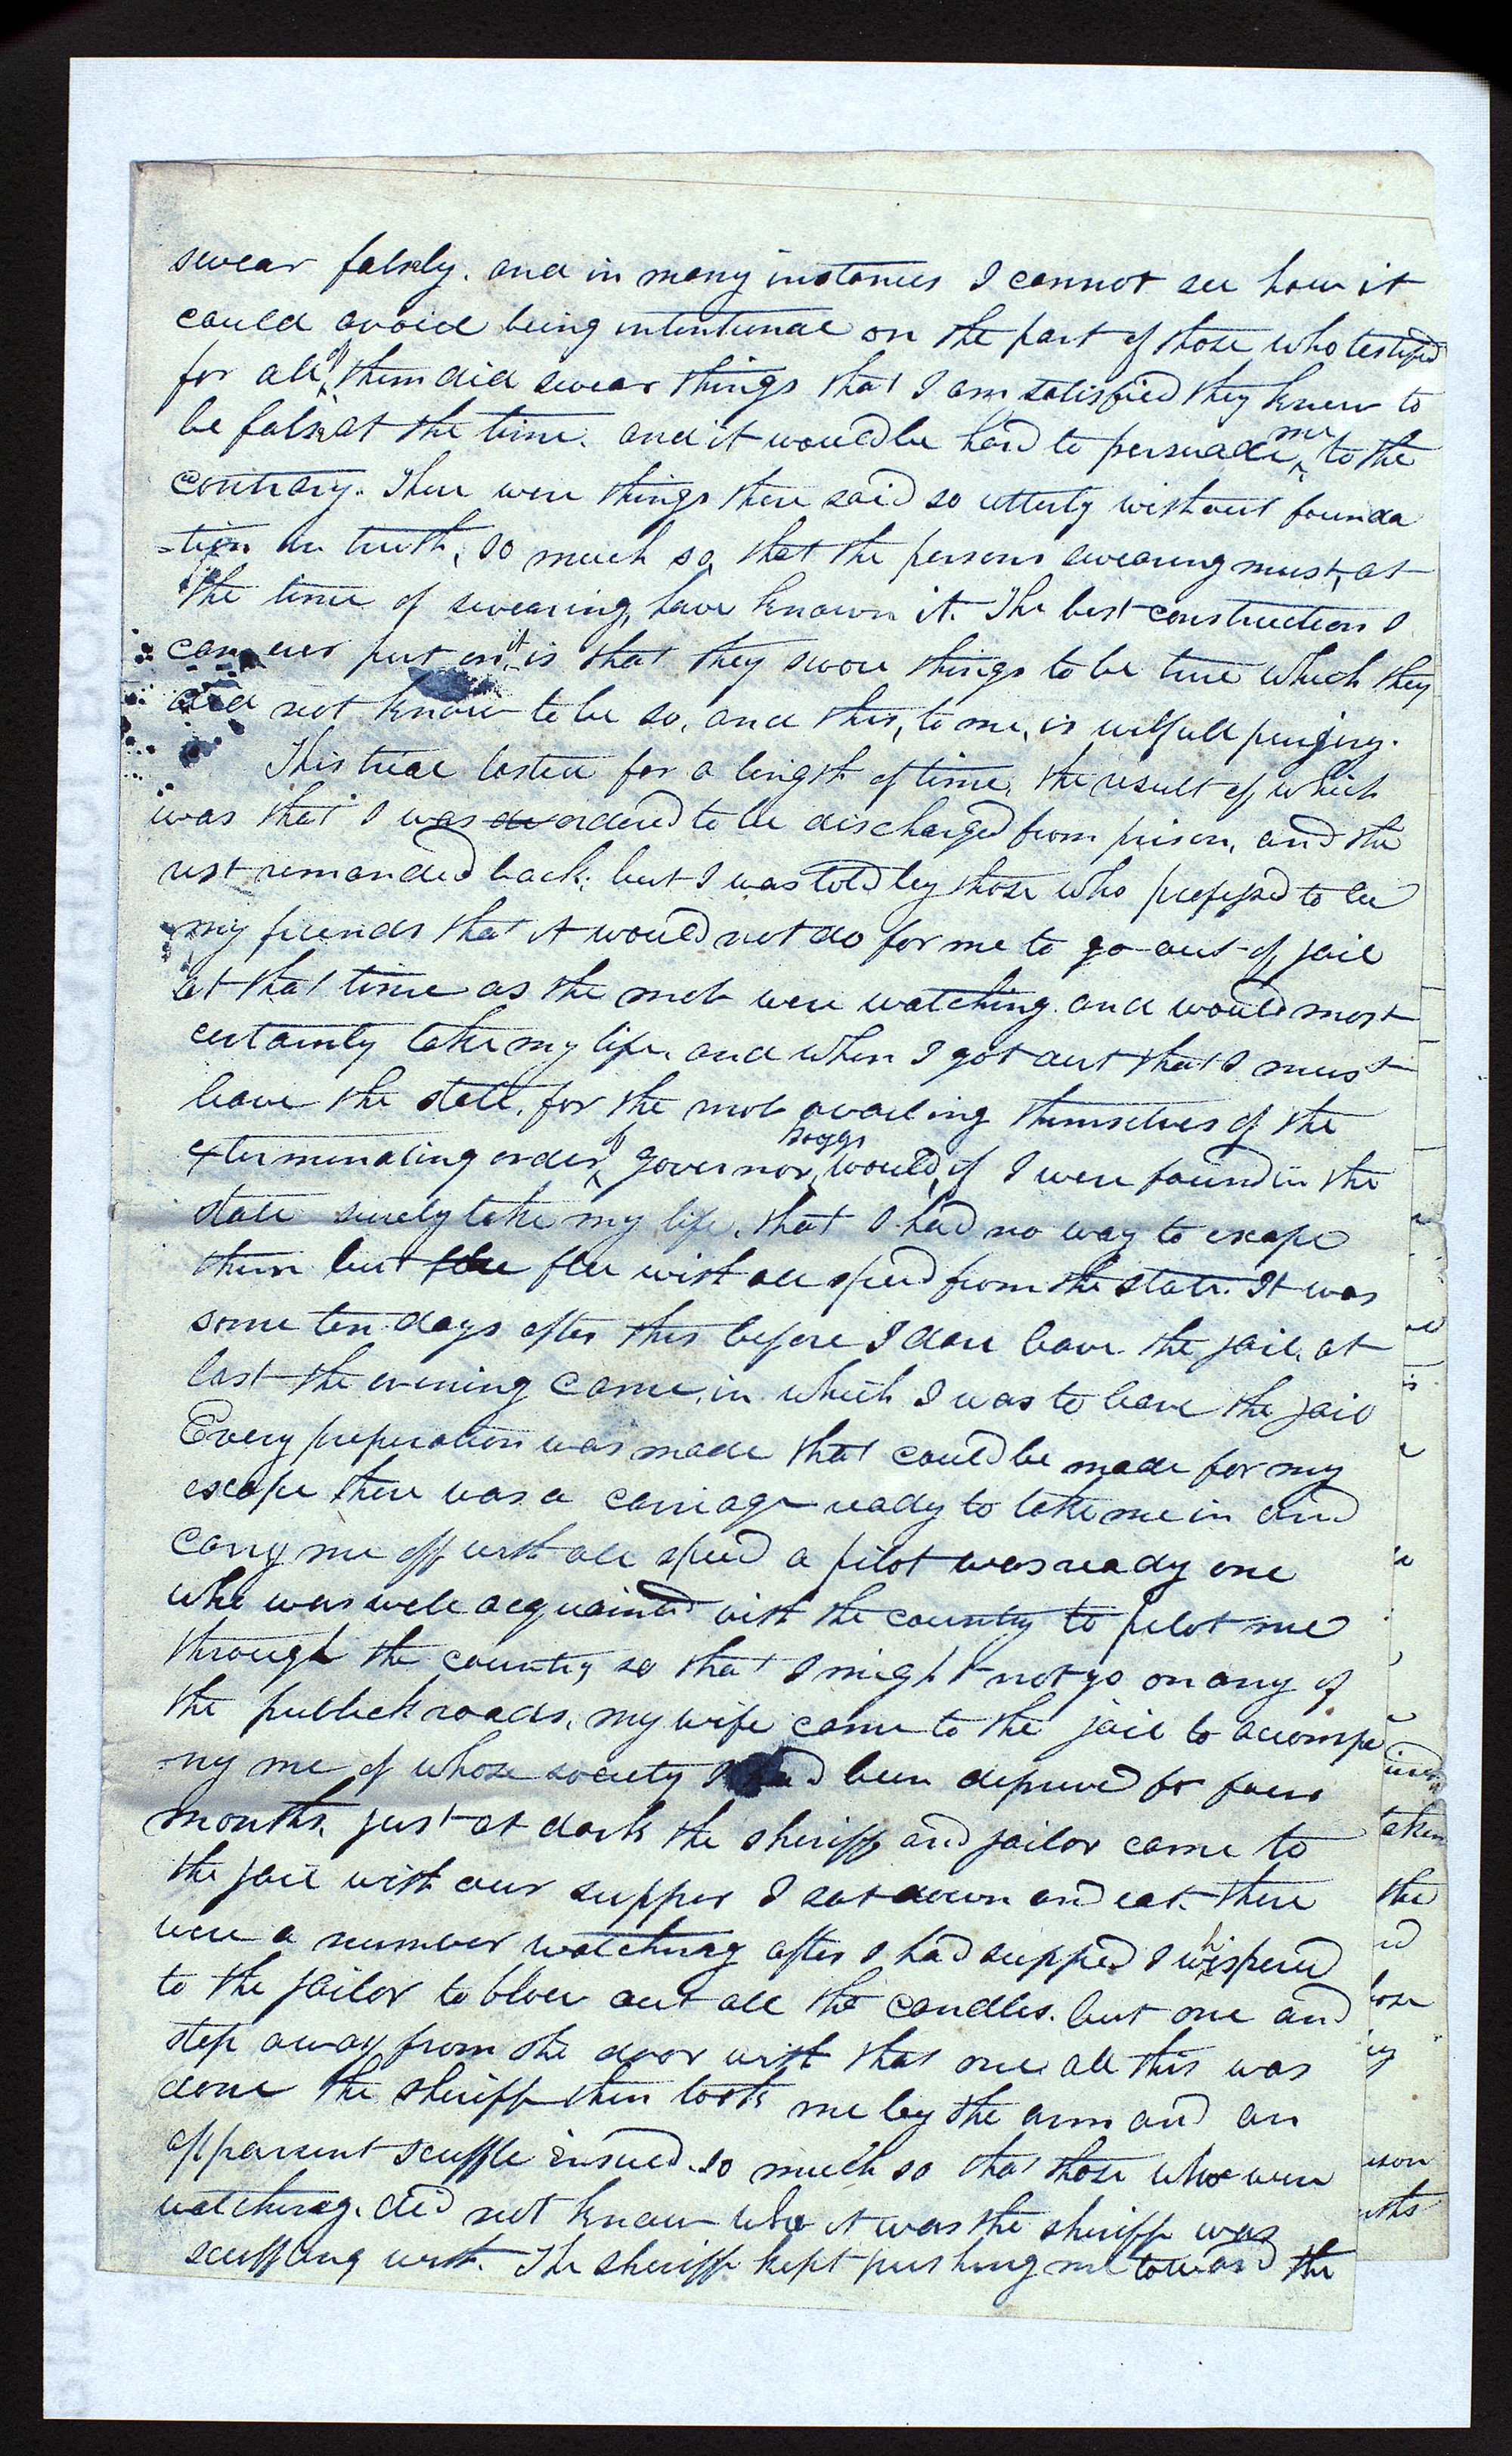 swear falsly. and in many instances I cannot see how it
could avoid being intentional on the part of those who testified
for all of them did swear things that I am satisfied they knew to
be false at the time. and it would be hard to persuade me to the
contrary. There were things there said so utterly without founda
-tion in truth, so much so, that the persons swearing must, at
the time of swearing, have known it. The best construction I
can ever put on it is that they swore things to be true which they
did not know to be so, and this, to me, is wilfull perjury.
This trial lasted for a length of time, the result of which
was that I was de ordered to be discharged from prison, and the
rest remanded back; but I was told by those who professed to be
my friends that it would not do for me to go out of jail
at that time as the mob were watching. and would most
certainly take my life, and when I got out that I must
leave the state, for the mob availing themselves of the
exterminating order of governor Boggs would, if I were found in the
state surely take my life, that I had no way to escape
them but flee with all speed from the state. It was
some ten days after this before I dare leave the jail, at
last the evening came, in which I was to leave the jail
Every preperation was made that could be made for my
escape there was a carriage ready to take me in and
carry me off with all speed a pilot was ready one
who was well acquainted with the country to pilot me
through the country so that I might not go on any of
the publick roads, my wife came to the jail to accompa
-ny me of whose society I had been deprived for four
months, just at dark the sheriff and jailor came to
the jail with our supper I sat down and eat. there
were a number watching after I had supped I whispered
to the jailor to blow out all the candles. but one and
step away from the door with that one all this was
done the sheriff then took me by the arm and an
apparent scuffle insued. so much so that those who were
watching. did not know who it was the sheriff was
scuffling with. The sheriff kept pushing me toward the
taken
the